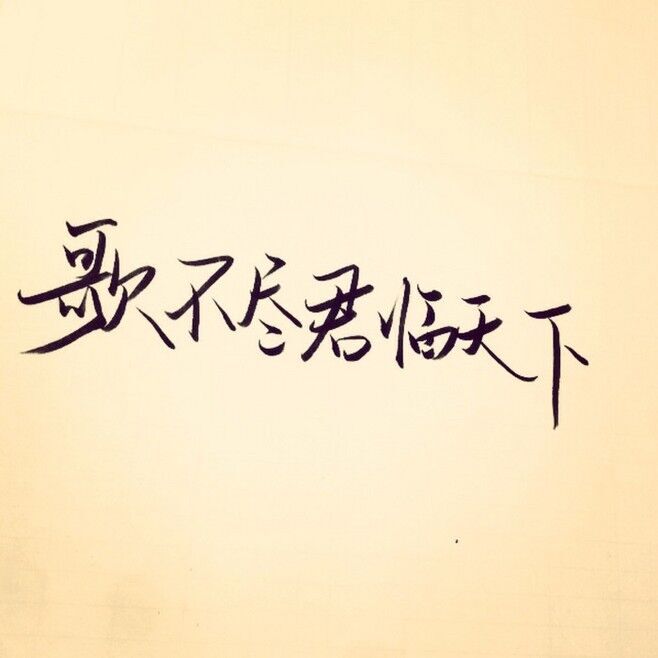 歌不尽君临天下